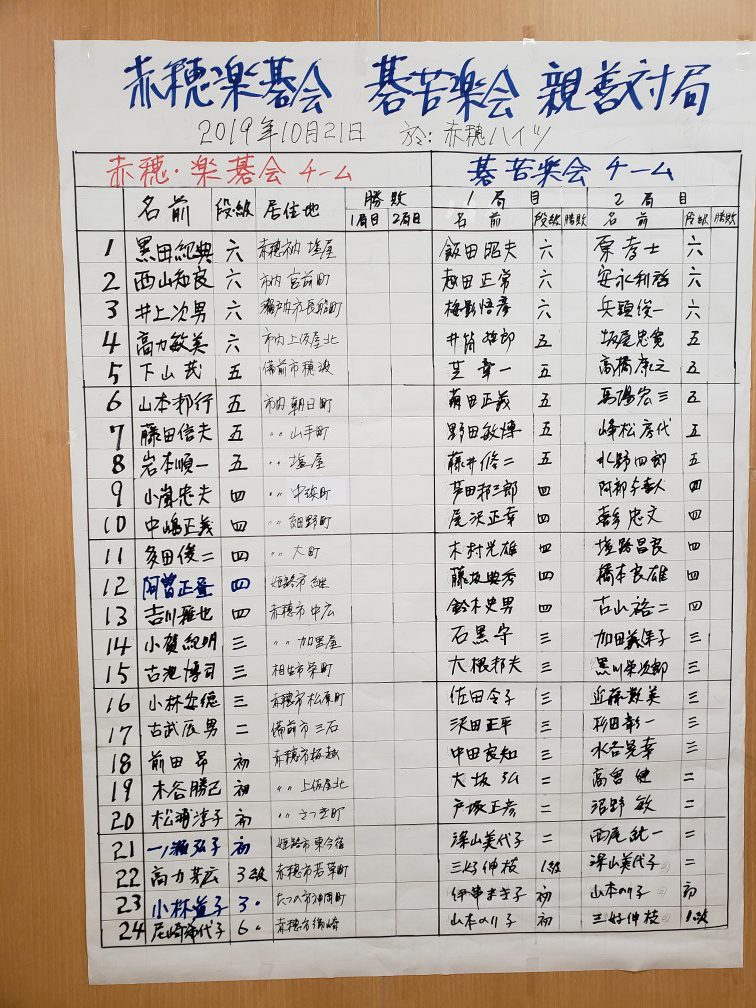 赤穂楽碁会 碁苦楽会 親善対局
2019年10月21日 於:赤穂ハイツ
赤穂・楽碁会 チーム 碁苦楽会 チーム
名前 段・級 居住地 勝敗 1局目 2局目
1局目 2局目 名前 段級 勝敗 名前 段級 勝敗
1 黒田紀典 六 赤穂市内 塩屋 飯田昭夫 六 原孝士 六
2 西山知良 六 市内 宮前町 越田正常 六 安永利啓 六
3 井上次男 六 瀬戸内市長船町 梅影悟彦 六 兵頭俊一 六
4 高力敏美 六 市内上仮屋北 井筒 五 坂尾忠寛 五
5 下山武 五 備前市穂波 芝幸一 五 高橋康之 五
6 山本邦行 五 市内 朝日町 菊田正義 五 宏三 五
7 藤田信夫 五 〃 山手町 野田敏博 五 峰松房代 五
8 岩本順一 五 〃 塩屋 藤井脩二 五 水野四郎 五
9 小嵐忠夫 四 〃 芦田邦三郎 四 阿部 四
10 中嶋正義 四 〃 細野町 尾沢正幸 四 喜多忠文 四
11 多田俊二 四 〃 大町 木村光雄 四 塩路昌良 四
12 阿曽正登 四 姫路市 継 藤坂典秀 四 橋本良雄 四
13 吉川雅也 四 赤穂市中広 鈴木史男 四 古山裕二 四
14 小賀紀明 三 〃 加里屋 石黒守 三 加田 三
15 古池博司 三 相生市栄町 大根邦夫 三 黒川栄次郎 三
16 小林安徳 三 赤穂市松原町 佐田令子 三 近藤敦美 三
17 古武辰男 二 備前市三石 沢田正平 三 杉田彰一 三
18 前田昂 初 赤穂市坂越 中田良知 三 水谷晃幸 三
19 木谷勝己 初 〃 上仮屋北 大坂弘 二 高曽健 二
20 松浦淳子 初 〃 さつき町 戸塚正彦 二 沼野敏 二
21 一ノ瀬弘子 初 姫路市東今宿 深山美代子 二 西尾純一 二
22 高力芳広 3級 赤穂市若草町 三好伸枝 1級 深山美代子 ②
23 小林益子 3〃 たつの市神岡町 伊車まき子 初 山本のり子 ② 初
24 尼崎寿代子 6〃 赤穂市御崎 山本のり子 初 三好伸枝 ② 1級